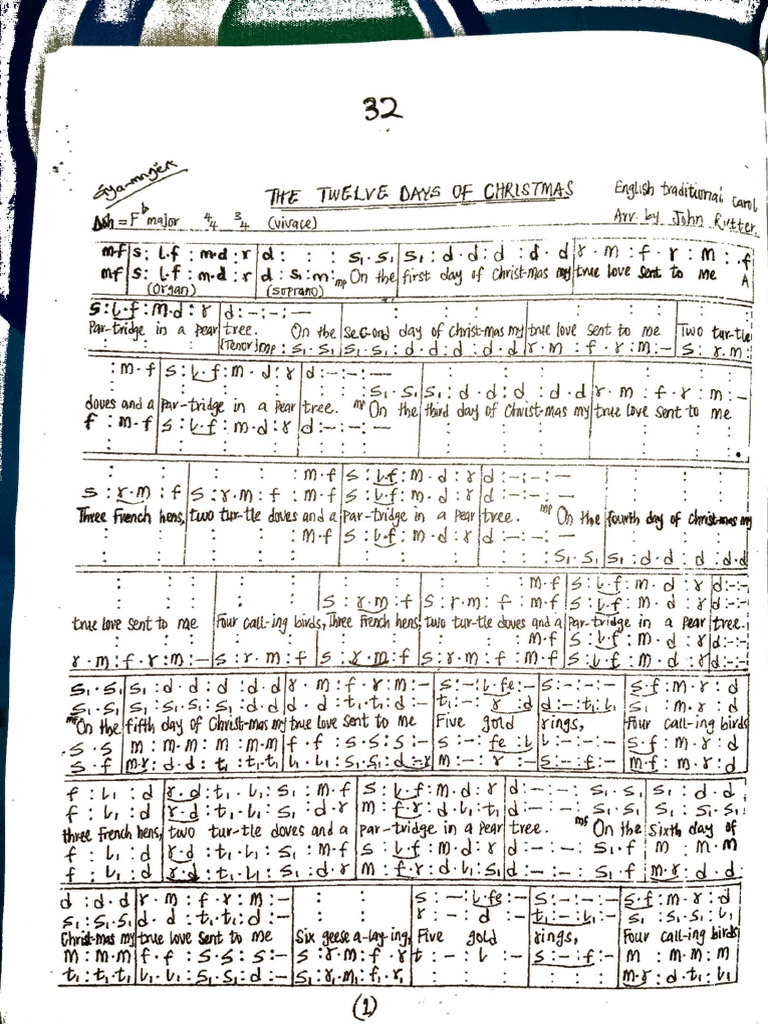 32
THE TWELVE DAYS OF CHRISTMAS
English traditional carol
Doh = F♭ major 4/4 3/4 (vivace)
Arr. by John Rutter.
m·f | s : l·f : m·d : r | d : : : s₁·s₁ | s₁ : d·d : d : d·d | r·m : f·r : m : ·f
mf | s : l·f : m·d : r | d : s₁ : m₁ : mp On the | first day of Christ-mas my | true love sent to me A
(organ) (soprano)
s : l·f : m·d : r | d : – : – : –
Par-tridge in a pear tree. On the second day of Christ-mas my true love sent to me Two tur-tle
(Tenor) mp : s₁·s₁ | s₁·s₁ : d·d : d : d·d | r·m : f·r : m : – | s : r·m :
: m·f | s : l·f : m·d : r | d : – : – : –
s₁·s₁ | s₁ : d·d : d : d·d | r·m : f·r : m : –
doves and a par-tridge in a pear tree. mp On the third day of Christ-mas my true love sent to me
f : m·f | s : l·f : m·d : r | d : – : – : –
m·f | s : l·f : m·d : r | d : – : – : –
s : r·m : f | s : r·m : f : m·f | s : l·f : m·d : r | d : – : – : –
Three French hens, two tur-tle doves and a par-tridge in a pear tree. mp On the fourth day of Christ-mas my
m·f | s : l·f : m·d : r | d : – : – : –
s₁·s₁ | s₁ : d·d : d : d·d
m·f | s : l·f : m·d : r | d : – : –
s : r·m : f | s : r·m : f : m·f | s : l·f : m·d : r | d : – : –
true love sent to me Four call-ing birds, Three French hens, two tur-tle doves and a par-tridge in a pear tree.
m·f | s : l·f : m·d : r | d : – : –
r·m : f·r : m : – | s : r·m : f | s : r·m : f | s : r·m : f : m·f | s : l·f : m·d : r | d : – : –
s₁·s₁ | s₁ : d·d : d : d·d | r·m : f·r : m : – | s : – : l·fe : – | s : – : – : – | s·f : m·r : d
s₁·s₁ | s₁ : s₁·s₁ : s₁ : s₁·s₁ | d·d : t₁·t₁ : d : – | t₁ : – : r : d | d : – : t₁ : l₁ | s₁ : m·r : d
mf On the fifth day of Christ-mas my true love sent to me Five gold rings, Four call-ing birds
s·s | m : m·m : m : m·m | f·f : s·s : s : – | s : – : fe : l | l : – : – : – | s·f : m·r : d
s·f | m·r : d·d : t₁ : t₁·t₁ | l₁·l₁ : s₁·s₁ : d – r | m : – : r : – | s : – : f : – | m·f : m·r : d
f : l₁ : d | r·d : t₁·l₁ : s₁ : m·f | s : l·f : m·d : r | d : – : – : s₁·s₁ | s₁ : d·d
f : l₁ : d | r·d : t₁·l₁ : s₁ : d·r | m : f·r : d·l₁ : t₁ | d : – : – : s₁·s₁ | s₁ : s₁·s₁
three French hens, two tur-tle doves and a par-tridge in a pear tree. mf On the sixth day of
f : l₁ : d | r·d : t₁·l₁ : s₁ : m·f | s : l·f : m·d : r | d : – : – : s₁·f | m : m·m
f : l₁ : d | r·d : t₁·l₁ : s₁ : d·r | m : f·r : d·l₁ : s₁ | d : – : – : s₁·f | m·r : d·d
d : d·d | r·m : f·r : m : – | : : | s : – : l·fe : – | s : – : – : – | s·f : m·r : d
s₁ : s₁·s₁ | d·d : t₁·t₁ : d : – | : : | r : – : d : – | t₁ : – : l₁ : – | s₁ : s₁·s₁ : l₁
Christ-mas my true love sent to me Six geese a-lay-ing, Five gold rings, Four call-ing birds
m : m·m | f·f : s·s : s : – | s : r·m : f·r | t : – : l : – | s : – : f : – | m : m·m : m
t₁ : t₁·t₁ | l₁·l₁ : s₁·s₁ : d : – | s₁ : r₁·m₁ : f₁·r₁ | : : : | : : : | m·r : d·t₁ : l₁
(1)